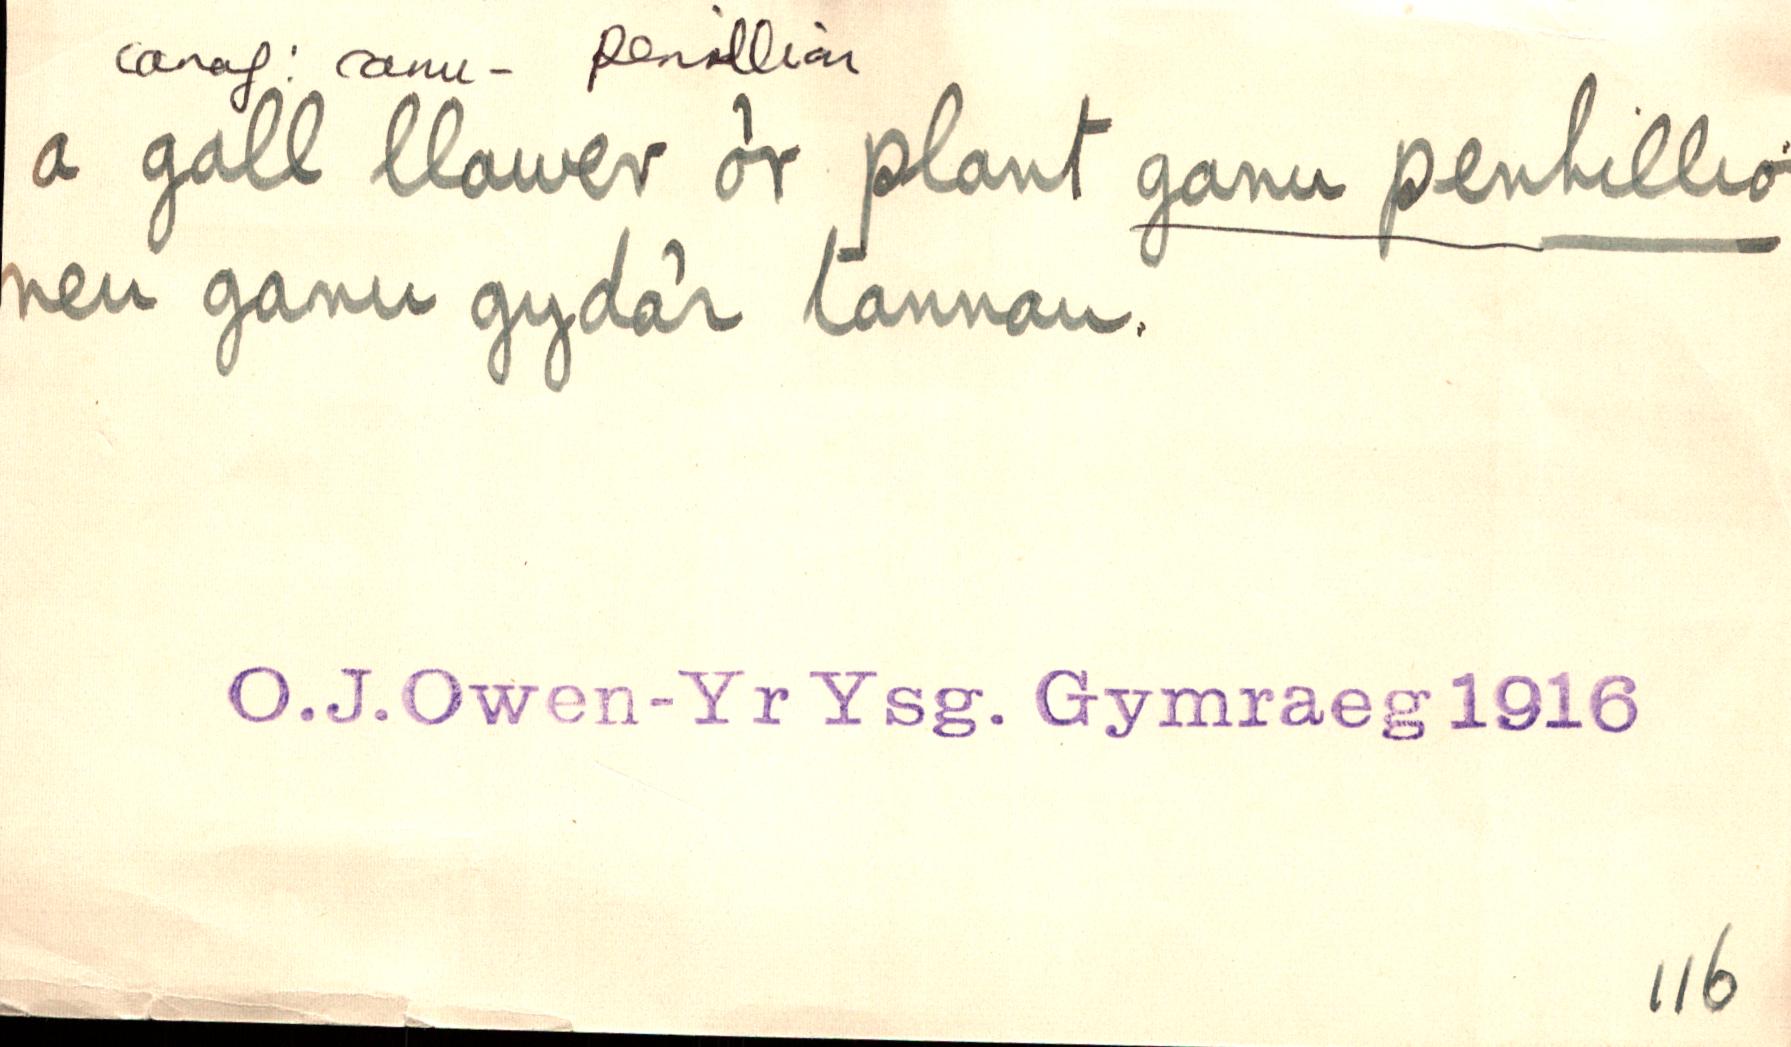 canaf: canu - penillion
a gall llawer o'r plant ganu penhillio
neu ganu gyda'r tannau.
O.J.Owen-Yr Ysg. Gymraeg 1916
116